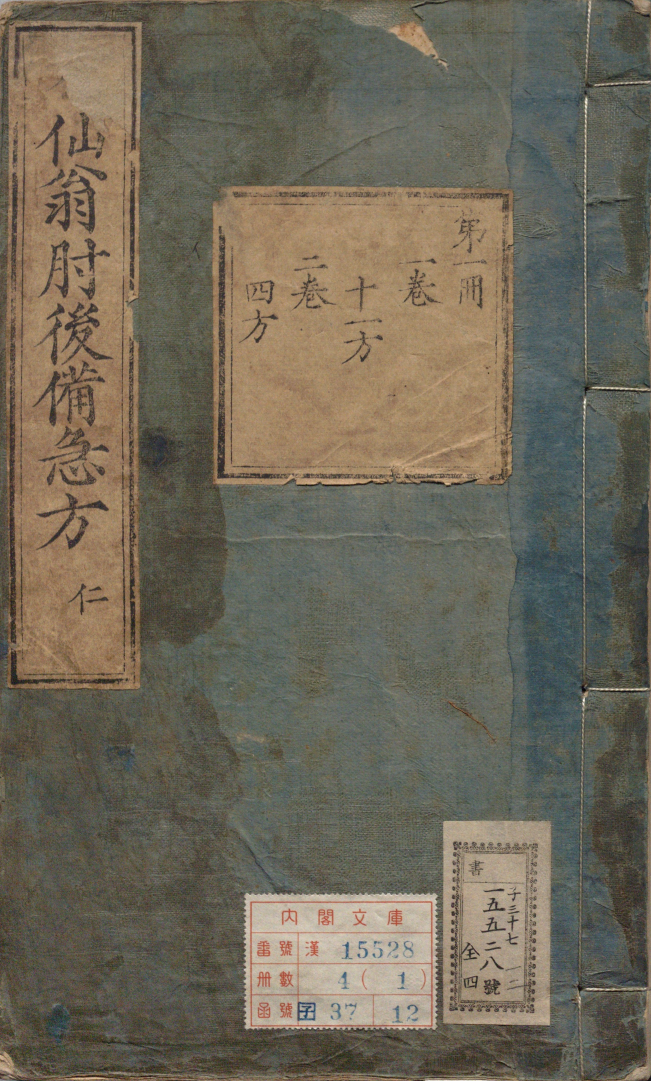 仙翁肘後備急方 仁
第一冊
一卷
十一方
二卷
四方
內閣文庫
番號 漢 15528
冊數 4(1)
函號 子 37 12
書
子三十七 一二
一五五二八號
全四